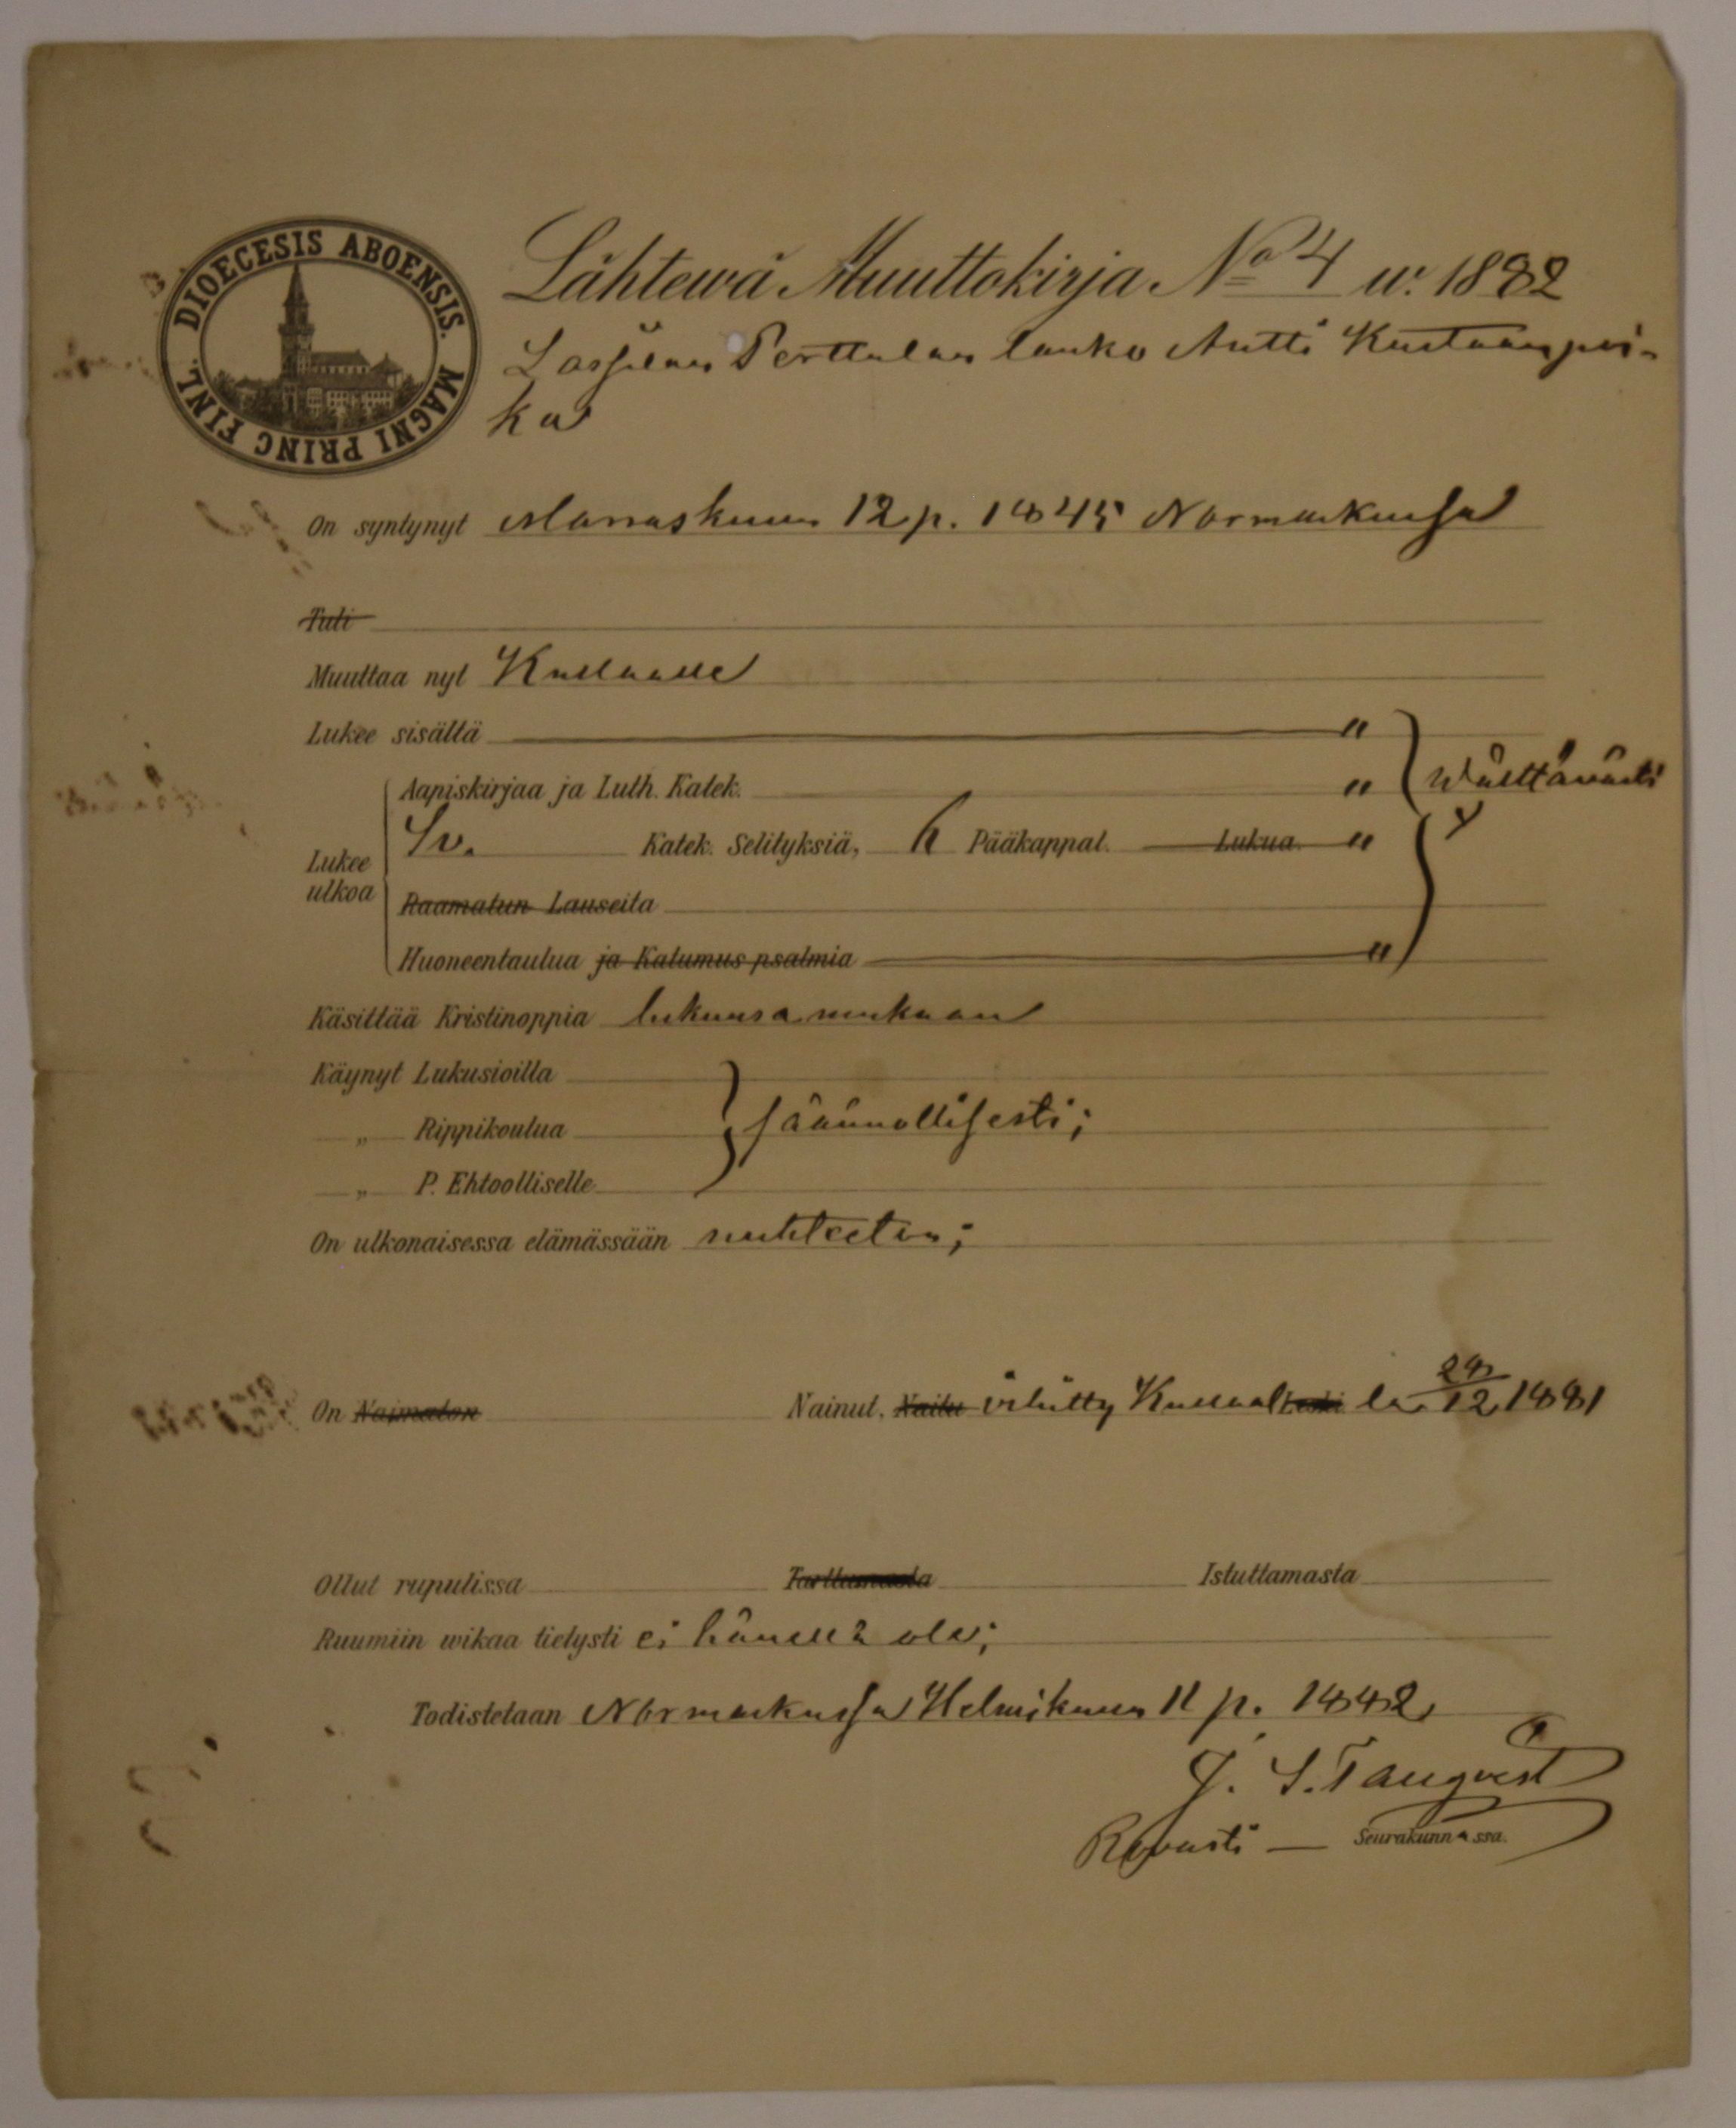 DIOECESIS ABOENSIS. MAGNI PRINC FINL.
Lähtewä Muuttokirja No 4 w. 1882
Lassilan Perttulan lanko Antti Kustaanpoi-
ka
On syntynyt Marraskuun 12 p. 1845 Normarkussa
Tuli
Muuttaa nyt Kullaalle
Lukee sisältä "
Aapiskirjaa ja Luth. Katek. " Wälttäwästi
Lukee ulkoa Sv. Katek. Selityksiä, 6 Pääkappal. Lukua. "
Raamatun Lauseita
Huoneentaulua ja Katumus psalmia "
Käsittää Kristinoppia lukunsa mukaan
Käynyt Lukusioilla
„ Rippikoulua säännöllisesti;
„ P. Ehtoolliselle
On ulkonaisessa elämässään nuhteeton;
On Naimaton Nainut, Naitu vihitty Kullaal Leski la 28/12 1881
Ollut rupulissa Tarttumasta Istuttamasta
Ruumiin wikaa tietysti ei hänellä ole;
Todistetaan Normarkussa Helmikuun 11 p. 1882
J. S. Tangvist
Rovasti — Seurakunnassa.